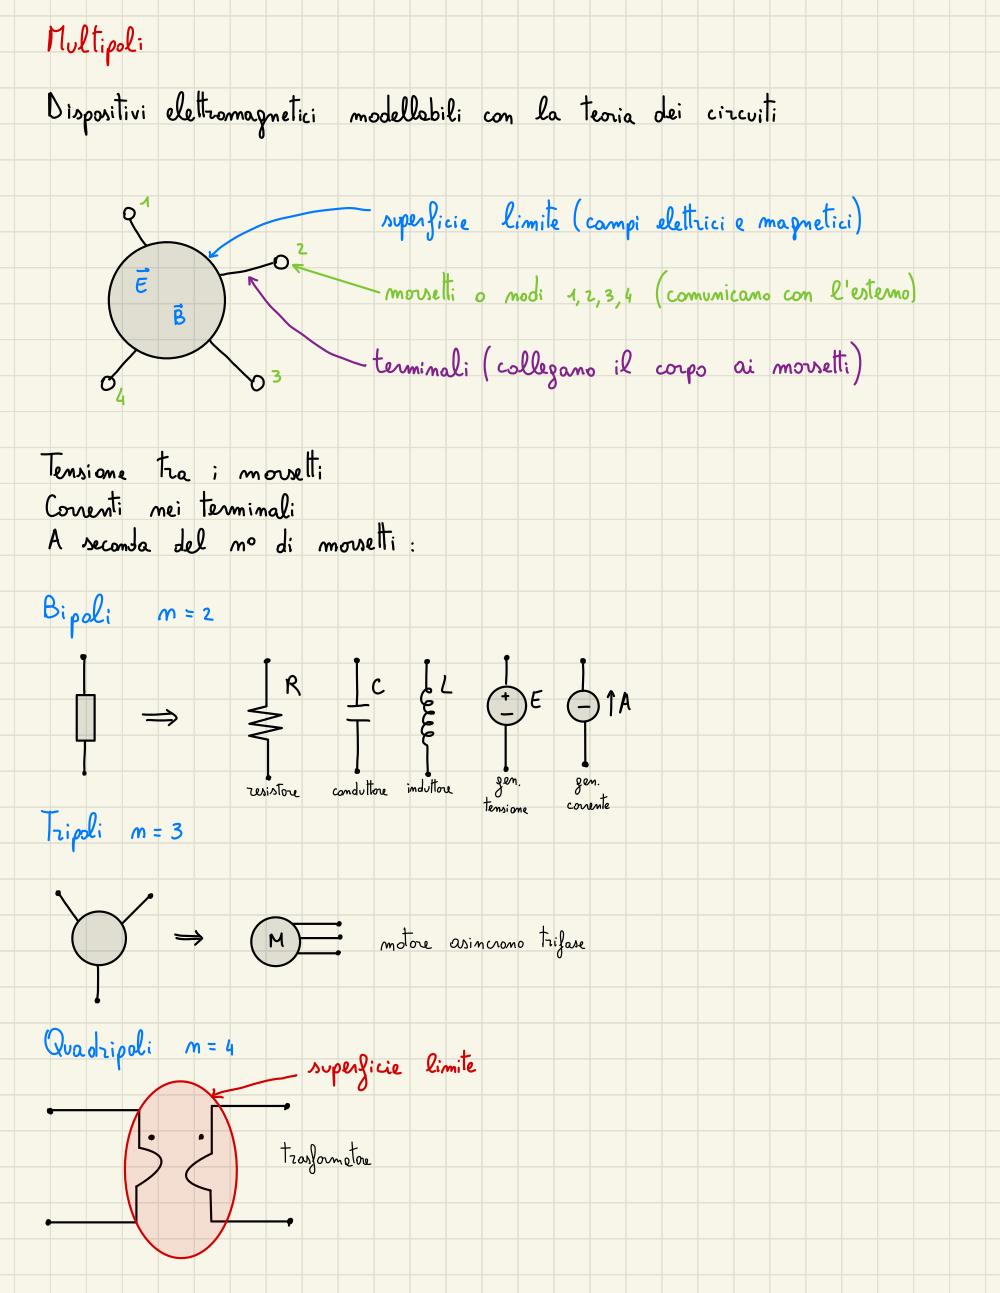 Multipoli
Dispositivi elettromagnetici modellabili con la teoria dei circuiti
1
superficie limite (campi elettrici e magnetici)
2
E⃗
morsetti o nodi 1,2,3,4 (comunicano con l'esterno)
B⃗
terminali (collegano il corpo ai morsetti)
3
4
Tensione tra i morsetti
Correnti nei terminali
A seconda del nº di morsetti :
Bipoli n = 2
⇒ R C L + − E − ↑ A
resistore conduttore induttore gen. tensione gen. corrente
Tripoli n = 3
⇒ M motore asincrono trifase
Quadripoli n = 4
superficie limite
trasformatore